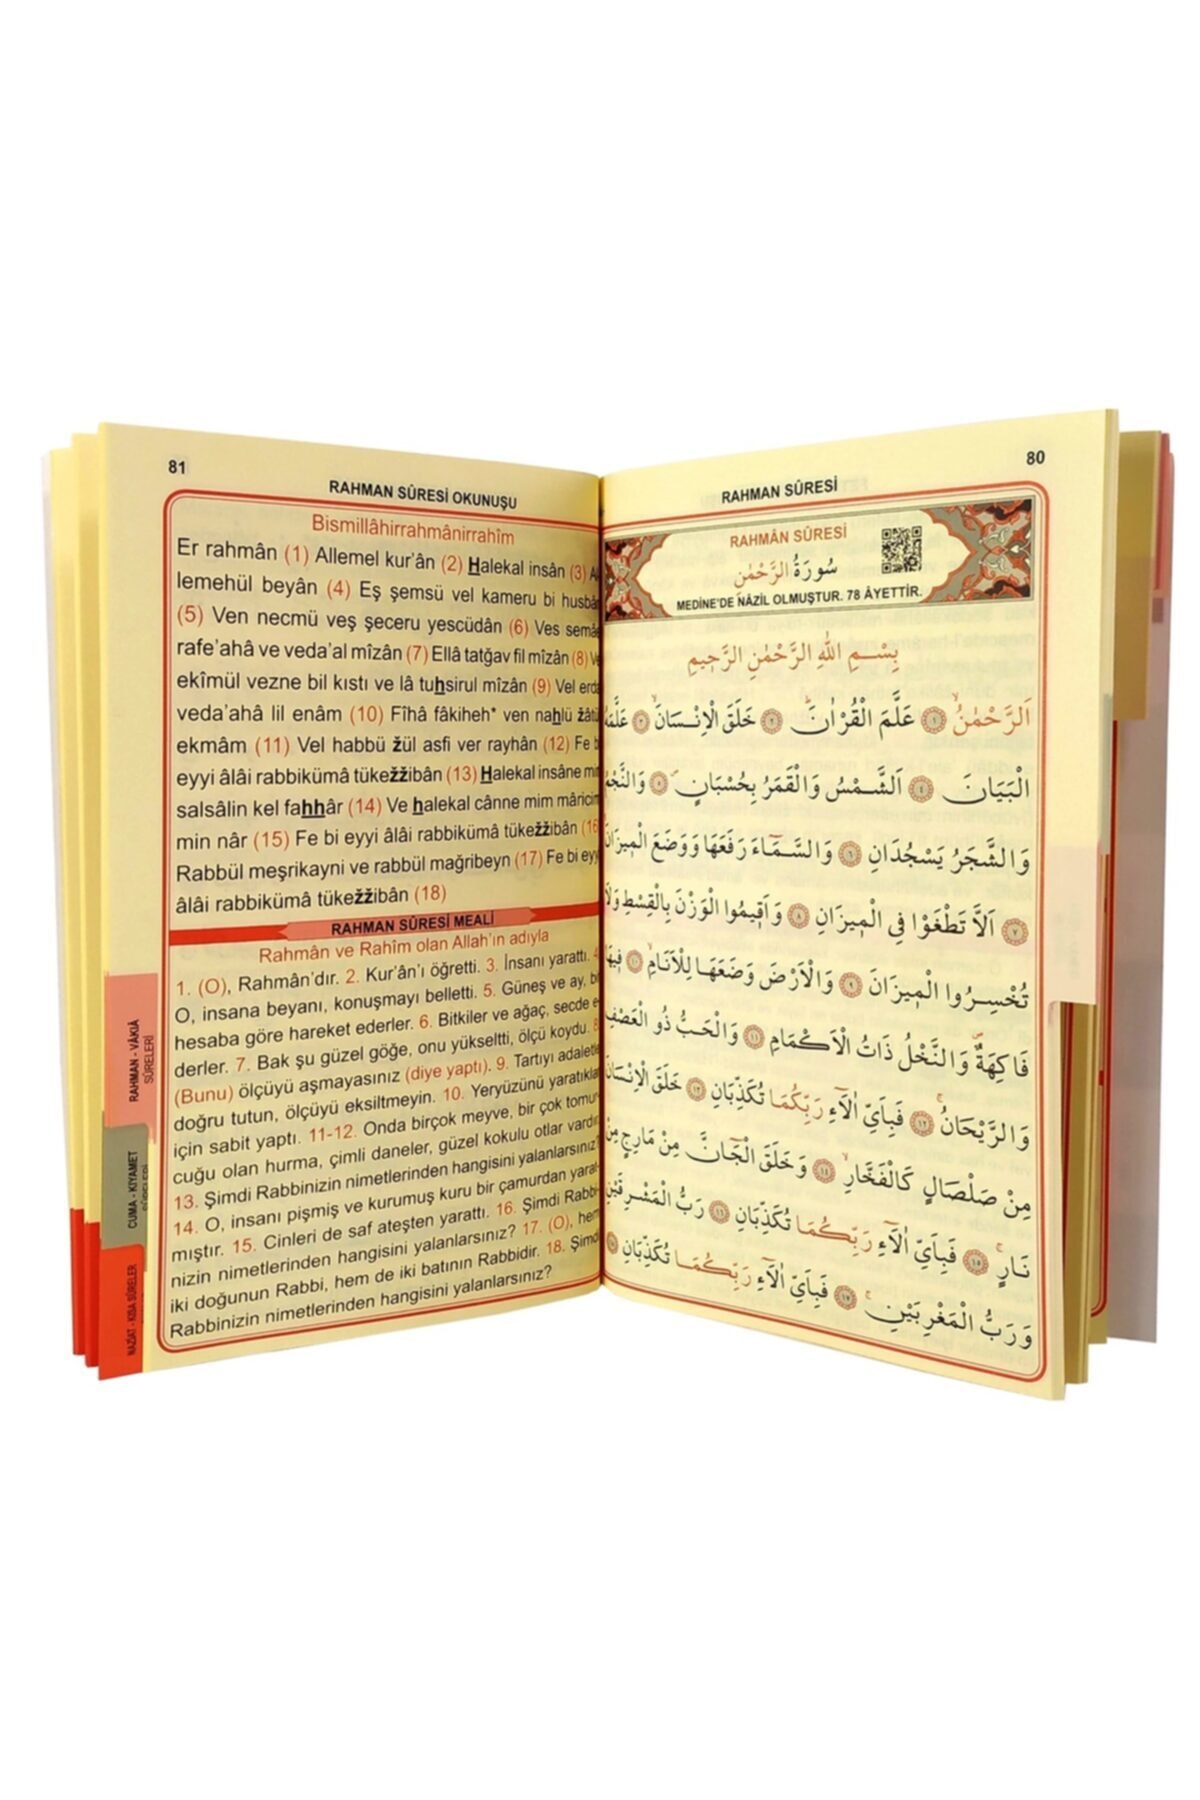 80
RAHMAN SÛRESİ
RAHMÂN SÛRESİ
سُورَةُ الرَّحْمٰنِ
MEDİNE'DE NÂZİL OLMUŞTUR. 78 ÂYETTİR.
بِسْمِ اللّٰهِ الرَّحْمٰنِ الرَّحِيمِ
اَلرَّحْمٰنُۙ ﴿١﴾ عَلَّمَ الْقُرْاٰنَۜ ﴿٢﴾ خَلَقَ الْاِنْسَانَۙ ﴿٣﴾ عَلَّمَهُ
الْبَيَانَ ﴿٤﴾ اَلشَّمْسُ وَالْقَمَرُ بِحُسْبَانٍۖ ﴿٥﴾ وَالنَّجْمُ
وَالشَّجَرُ يَسْجُدَانِ ﴿٦﴾ وَالسَّمَٓاءَ رَفَعَهَا وَوَضَعَ الْمِيزَانَ
﴿٧﴾ اَلَّا تَطْغَوْا فِي الْمِيزَانِ ﴿٨﴾ وَاَقِيمُوا الْوَزْنَ بِالْقِسْطِ وَلَا
تُخْسِرُوا الْمِيزَانَ ﴿٩﴾ وَالْاَرْضَ وَضَعَهَا لِلْاَنَامِۙ ﴿١٠﴾ فِيهَا
فَاكِهَةٌۖ وَالنَّخْلُ ذَاتُ الْاَكْمَامِ ﴿١١﴾ وَالْحَبُّ ذُو الْعَصْفِ
وَالرَّيْحَانُۚ ﴿١٢﴾ فَبِاَيِّ اٰلَٓاءِ رَبِّكُمَا تُكَذِّبَانِ ﴿١٣﴾ خَلَقَ الْاِنْسَانَ
مِنْ صَلْصَالٍ كَالْفَخَّارِۙ ﴿١٤﴾ وَخَلَقَ الْجَٓانَّ مِنْ مَارِجٍ مِنْ
نَارٍۚ ﴿١٥﴾ فَبِاَيِّ اٰلَٓاءِ رَبِّكُمَا تُكَذِّبَانِ ﴿١٦﴾ رَبُّ الْمَشْرِقَيْنِ
وَرَبُّ الْمَغْرِبَيْنِۚ ﴿١٧﴾ فَبِاَيِّ اٰلَٓاءِ رَبِّكُمَا تُكَذِّبَانِ ﴿١٨﴾
81
RAHMAN SÛRESİ OKUNUŞU
Bismillâhirrahmânirrahîm
Er rahmân (1) Allemel kur'ân (2) Halekal insân (3)
lemehül beyân (4) Eş şemsü vel kameru bi husbân
(5) Ven necmü veş şeceru yescüdân (6) Ves semâe
rafe'ahâ ve veda'al mîzân (7) Ellâ tatğav fil mîzân (8) Ve
ekîmül vezne bil kıstı ve lâ tuhsirul mîzân (9) Vel erda
veda'ahâ lil enâm (10) Fîhâ fâkiheh* ven nahlü žâtü
ekmâm (11) Vel habbü žül asfi ver rayhân (12) Fe b
eyyi âlâi rabbikümâ tükežžibân (13) Halekal insâne min
salsâlin kel fahhâr (14) Ve halekal cânne mim mâricin
min nâr (15) Fe bi eyyi âlâi rabbikümâ tükežžibân (16
Rabbül meşrikayni ve rabbül mağribeyn (17) Fe bi eyy
âlâi rabbikümâ tükežžibân (18)
RAHMAN SÛRESİ MEALİ
Rahmân ve Rahîm olan Allah'ın adıyla
1. (O), Rahmân'dır. 2. Kur'ân'ı öğretti. 3. İnsanı yarattı. 4
O, insana beyanı, konuşmayı belletti. 5. Güneş ve ay, bi
hesaba göre hareket ederler. 6. Bitkiler ve ağaç, secde e-
derler. 7. Bak şu güzel göğe, onu yükseltti, ölçü koydu. 8
(Bunu) ölçüyü aşmayasınız (diye yaptı). 9. Tartıyı adaletle
doğru tutun, ölçüyü eksiltmeyin. 10. Yeryüzünü yaratıklar
için sabit yaptı. 11-12. Onda birçok meyve, bir çok tomur-
cuğu olan hurma, çimli daneler, güzel kokulu otlar vardır.
13. Şimdi Rabbinizin nimetlerinden hangisini yalanlarsınız?
14. O, insanı pişmiş ve kurumuş kuru bir çamurdan yarat-
mıştır. 15. Cinleri de saf ateşten yarattı. 16. Şimdi Rabbi-
nizin nimetlerinden hangisini yalanlarsınız? 17. (O), hem
iki doğunun Rabbi, hem de iki batının Rabbidir. 18. Şimdi
Rabbinizin nimetlerinden hangisini yalanlarsınız?
RAHMAN - VÂKIÂ
SÛRELERİ
CUMA - KIYAMET
NAZİAT - KISA SÛRELER